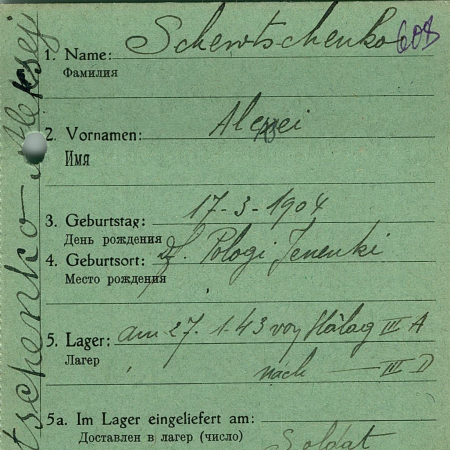 1. Name: Schewtschenko 608
Фамилия
2. Vornamen: Alexei
Имя
3. Geburtstag: 17-3-1904
День рождения
4. Geburtsort: Df. Pologi
Место рождения
5. Lager: am 27.1.43 von Stalag III A
Лагер
nach — III D
5a. Im Lager eingeliefert am:
Доставлен в лагер (число)
Soldat
tschenko Aleksej